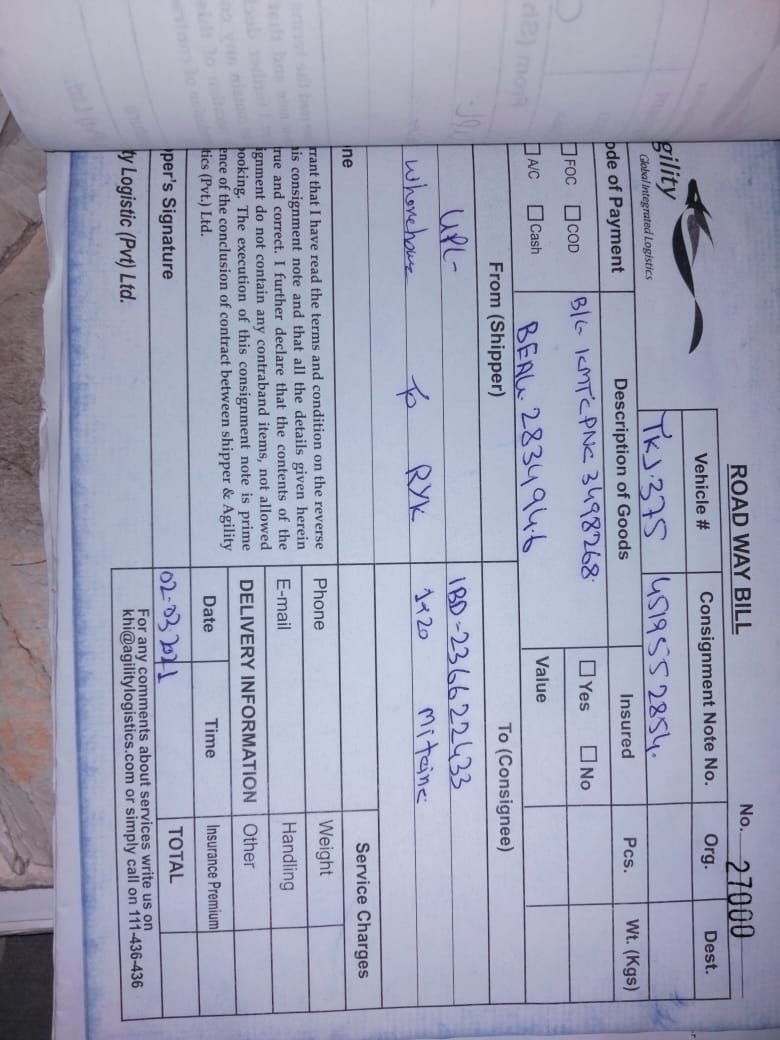 ROAD WAY BILL
No. 27000
gility
Global Integrated Logistics
Vehicle #
Consignment Note No.
Org.
Dest.
TKJ.375
4519552854.
ode of Payment
Description of Goods
Insured
Pcs.
Wt. (Kgs)
B/L KMTCPNC 3498268
☐ FOC ☐ COD
☐ Yes ☐ No
☐ A/C ☐ Cash
BEAU. 2834946
Value
From (Shipper)
To (Consignee)
UPL
IBD-236622433
Whorehouse To RYK
1x20
ne
Service Charges
rrant that I have read the terms and condition on the reverse
his consignment note and that all the details given herein
rue and correct. I further declare that the contents of the
ignment do not contain any contraband items, not allowed
ooking. The execution of this consignment note is prime
ence of the conclusion of contract between shipper & Agility
tics (Pvt.) Ltd.
Phone
Weight
E-mail
Handling
DELIVERY INFORMATION
Other
Date
Time
Insurance Premium
per's Signature
02-03 2021
TOTAL
ty Logistic (Pvt) Ltd.
For any comments about services write us on
khi@agilitylogistics.com or simply call on 111-436-436